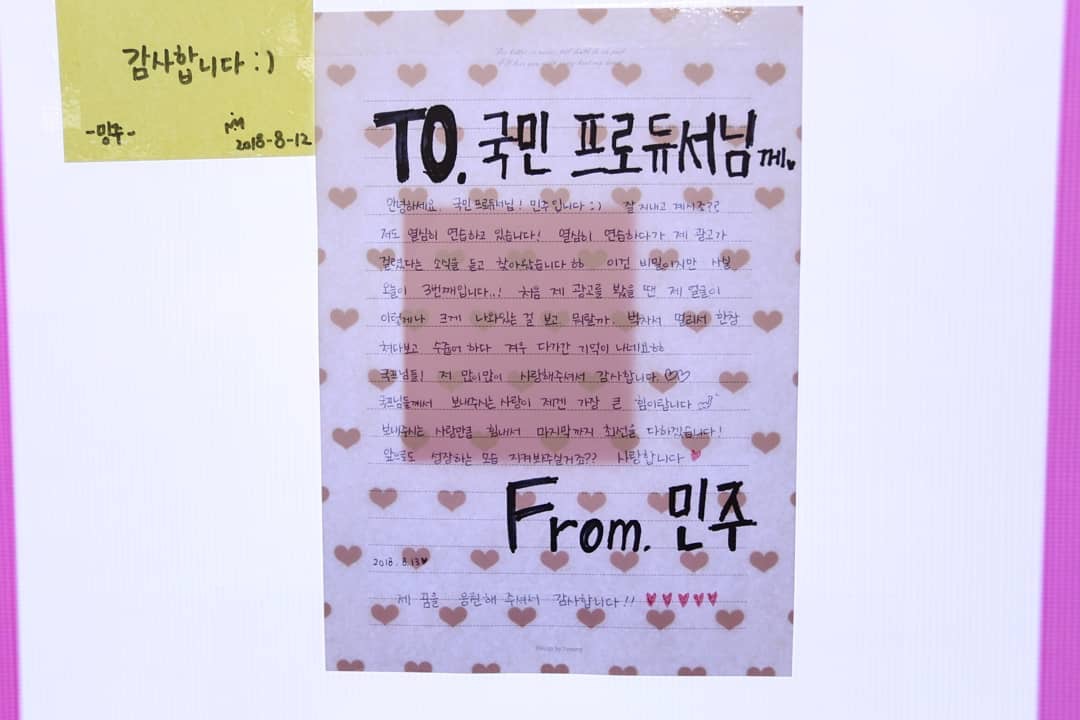 감사합니다 :)
-밍주-
2018-8-12
TO. 국민 프로듀서님께♥
안녕하세요. 국민프로듀서님! 민주입니다 :) 잘 지내고 계시죠??
저도 열심히 연습하고 있습니다! 열심히 연습하다가 제 광고가
걸렸다는 소식을 듣고 찾아왔습니다ㅎㅎ 이건 비밀이지만 사실
오늘이 3번째입니다..! 처음 제 광고를 봤을 땐 제 얼굴이
이렇게나 크게 나와있는 걸 보고, 뭐랄까. 벅차서 멀리서 한참
쳐다보고 수줍어 하다 겨우 다가간 기억이 나네요ㅎㅎ
국프님들! 저 많이많이 사랑해주셔서 감사합니다. ♡♡
국프님들께서 보내주시는 사랑이 제겐 가장 큰 힘이랍니다
보내주시는 사랑만큼 힘내서 마지막까지 최선을 다하겠습니다!
앞으로도 성장하는 모습 지켜봐주실거죠?? 사랑합니다 ♥
From. 민주
2018. 8.13♥
제 꿈을 응원해 주셔서 감사합니다!! ♥♥♥♥♥